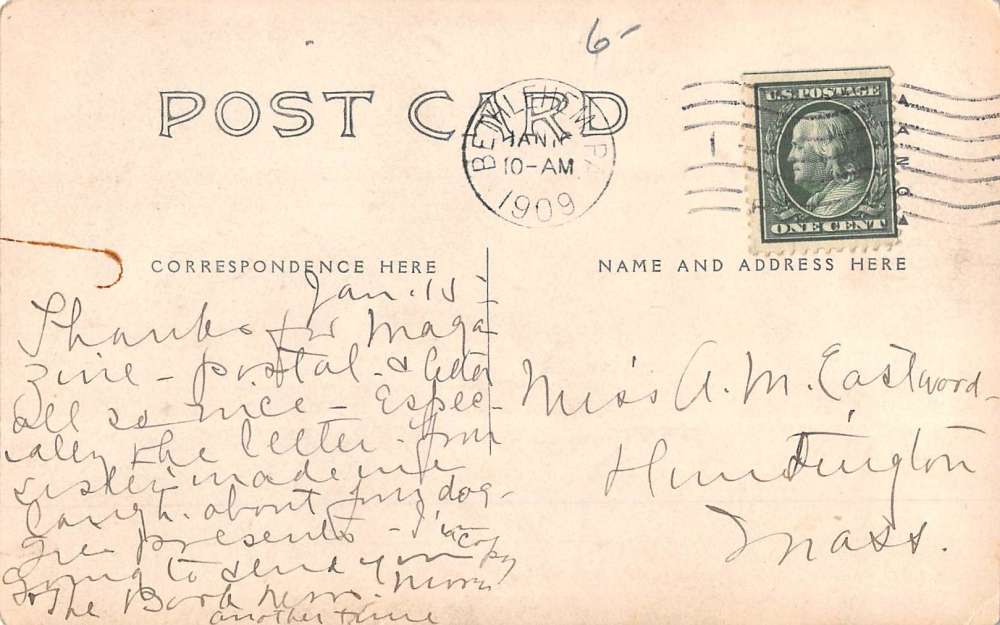 6-
POST CARD
BETHLEHEM, PA.
JAN
10-AM
1909
U.S. POSTAGE
ONE CENT
CORRESPONDENCE HERE
NAME AND ADDRESS HERE
Jan. 15
Thanks for Maga
zine - postal - & letter
all so nice - Espec-
ially the letter. Your
sister made me
laugh. about your dog-
gie presents - I'm
going to send you copy
The Book News.
another time
Miss A. M. Eastwood -
Huntington
Mass.